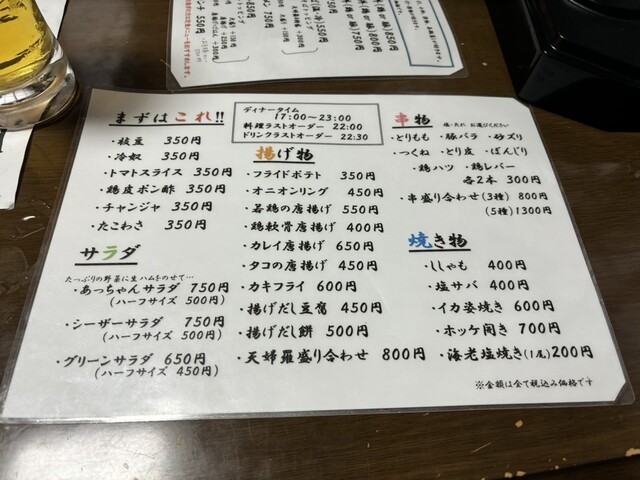 まずはこれ!!
・枝豆 350円
・冷奴 350円
・トマトスライス 350円
・鶏皮ポン酢 350円
・チャンジャ 350円
・たこわさ 350円
サラダ
たっぷりの野菜に生ハムをのせて…
・あっちゃんサラダ 750円
(ハーフサイズ 500円)
・シーザーサラダ 750円
(ハーフサイズ 500円)
・グリーンサラダ 650円
(ハーフサイズ 450円)
ディナータイム
17:00~23:00
料理ラストオーダー 22:00
ドリンクラストオーダー 22:30
揚げ物
・フライドポテト 350円
・オニオンリング 450円
・若鶏の唐揚げ 550円
・鶏軟骨唐揚げ 400円
・カレイ唐揚げ 650円
・タコの唐揚げ 450円
・カキフライ 600円
・揚げだし豆腐 450円
・揚げだし餅 500円
・天婦羅盛り合わせ 800円
串物
塩・たれ お選びください
・とりもも ・豚バラ ・砂ズリ
・つくね ・とり皮 ・ぼんじり
・鶏ハツ ・鶏レバー
各2本 300円
・串盛り合わせ(3種) 800円
(5種)1300円
焼き物
・ししゃも 400円
・塩サバ 400円
・イカ姿焼き 600円
・ホッケ開き 700円
・海老塩焼き(1尾)200円
※金額は全て税込み価格です